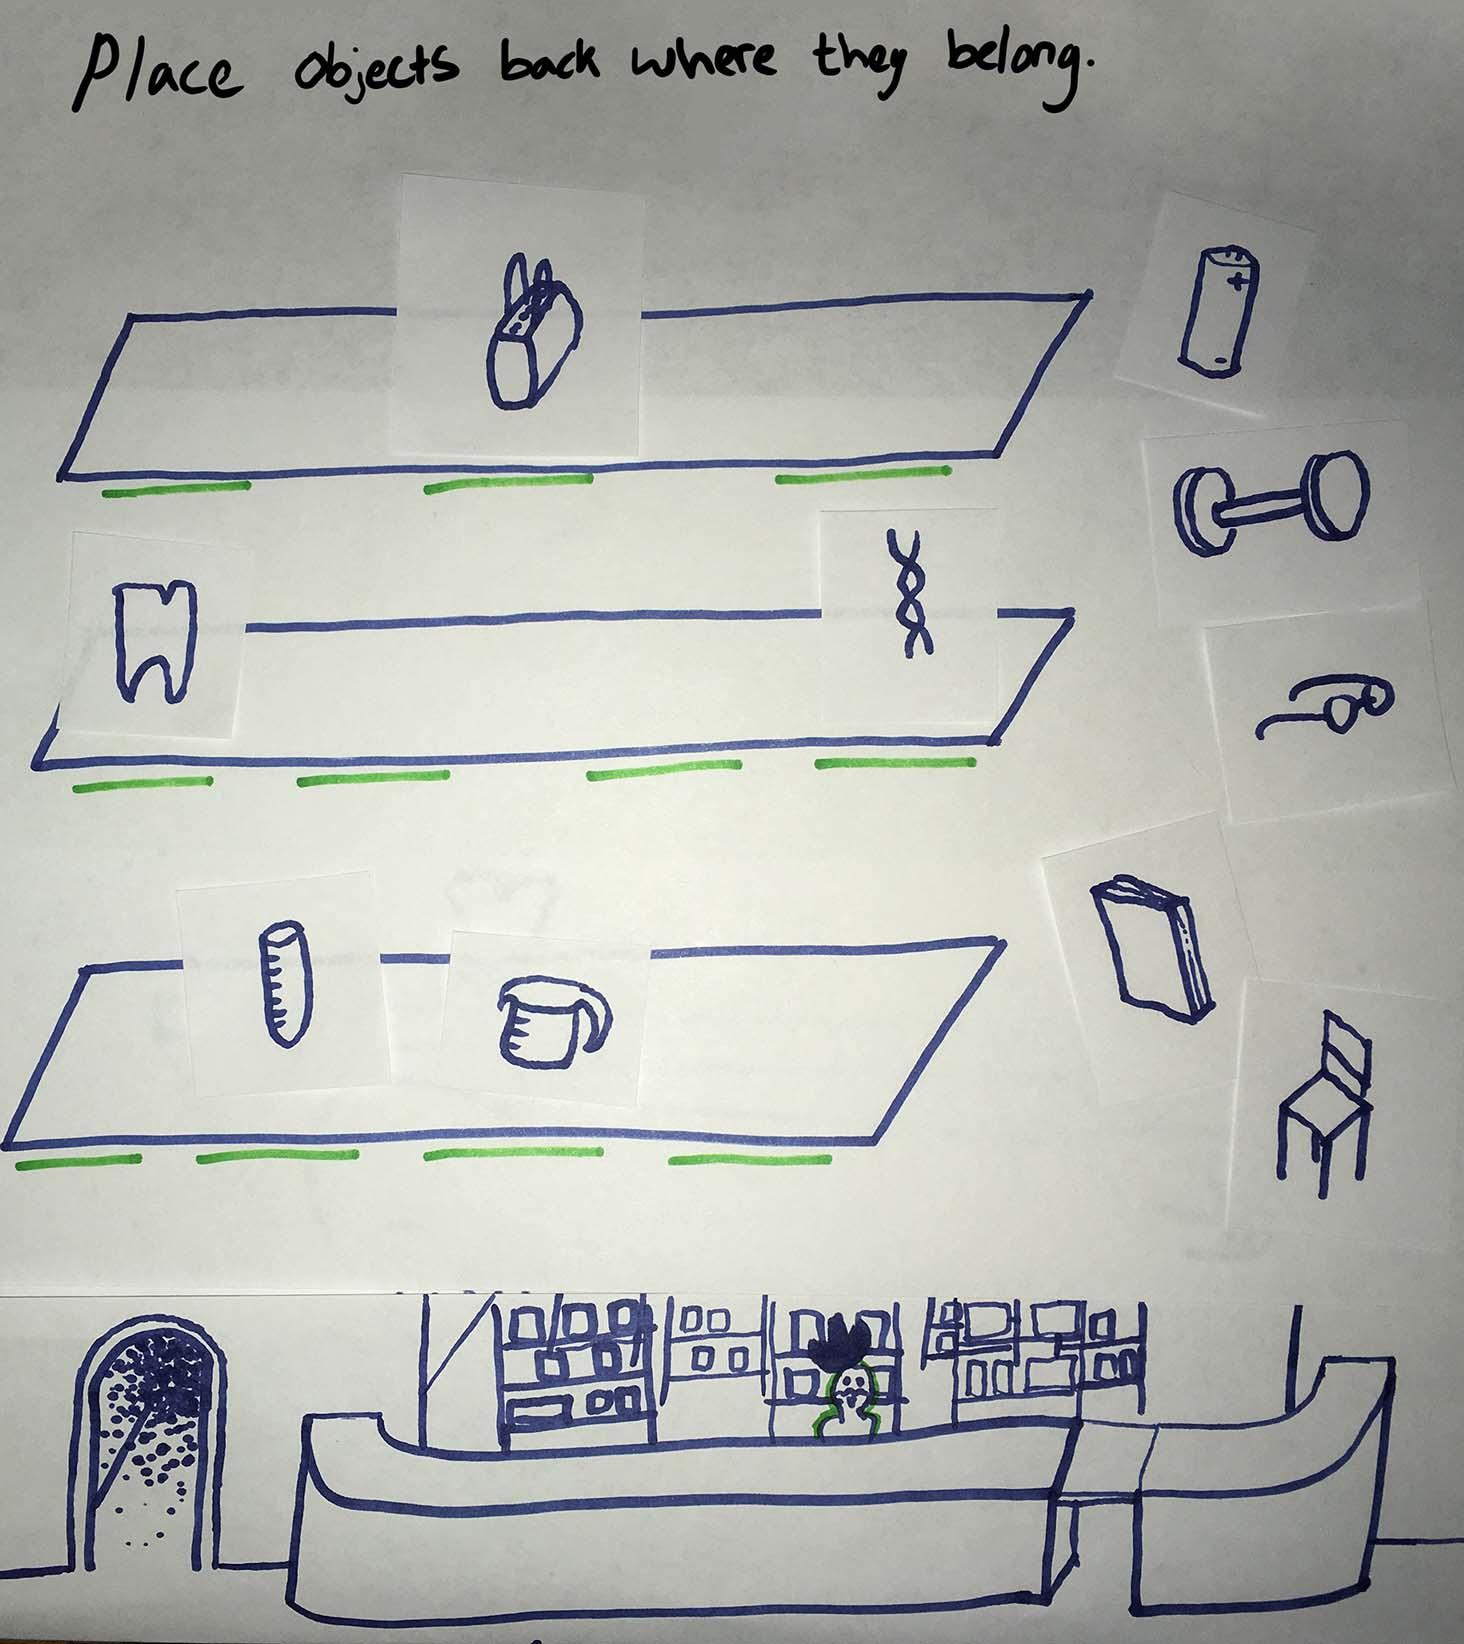 Place objects back where they belong.